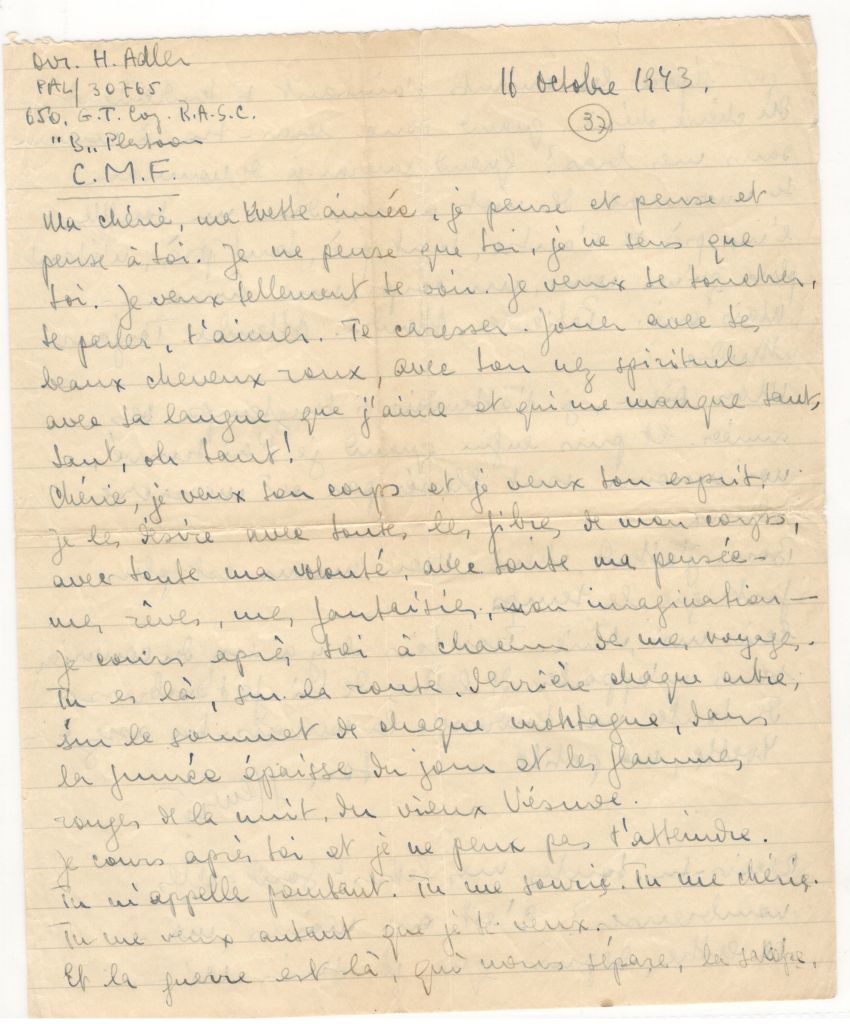 Dvr. H. Adler
PAL/30765
650. G.T. Coy. R.A.S.C.
"B" Platoon
C.M.F.
16 Octobre 1943.
37
Ma chérie, ma Yvette aimée, je pense et pense et
pense à toi. Je ne pense que toi, je ne sens que
toi. Je veux tellement te voir. Je veux te toucher,
te parler, t'aimer. Te caresser. Jouer avec tes
beaux cheveux roux, avec ton nez spirituel
avec ta langue que j'aime et qui me manque tant,
tant, oh tant!
Chérie, je veux ton corps et je veux ton esprit.
Je les désire avec toutes les fibres de mon corps,
avec toute ma volonté, avec toute ma pensée –
mes rêves, mes fantaisies, mon imagination –
Je cours après toi à chacun de mes voyages.
Tu es là, sur la route, derrière chaque arbre,
sur le sommet de chaque montagne, dans
la fumée épaisse du jour et les flammes
rouges de la nuit, du vieux Vésuve.
Je cours après toi et je ne peux pas t'atteindre.
Tu m'appelle pourtant. Tu me souris. Tu me chéris.
Tu me veux autant que je te veux.
Et la guerre est là, qui nous sépare, la